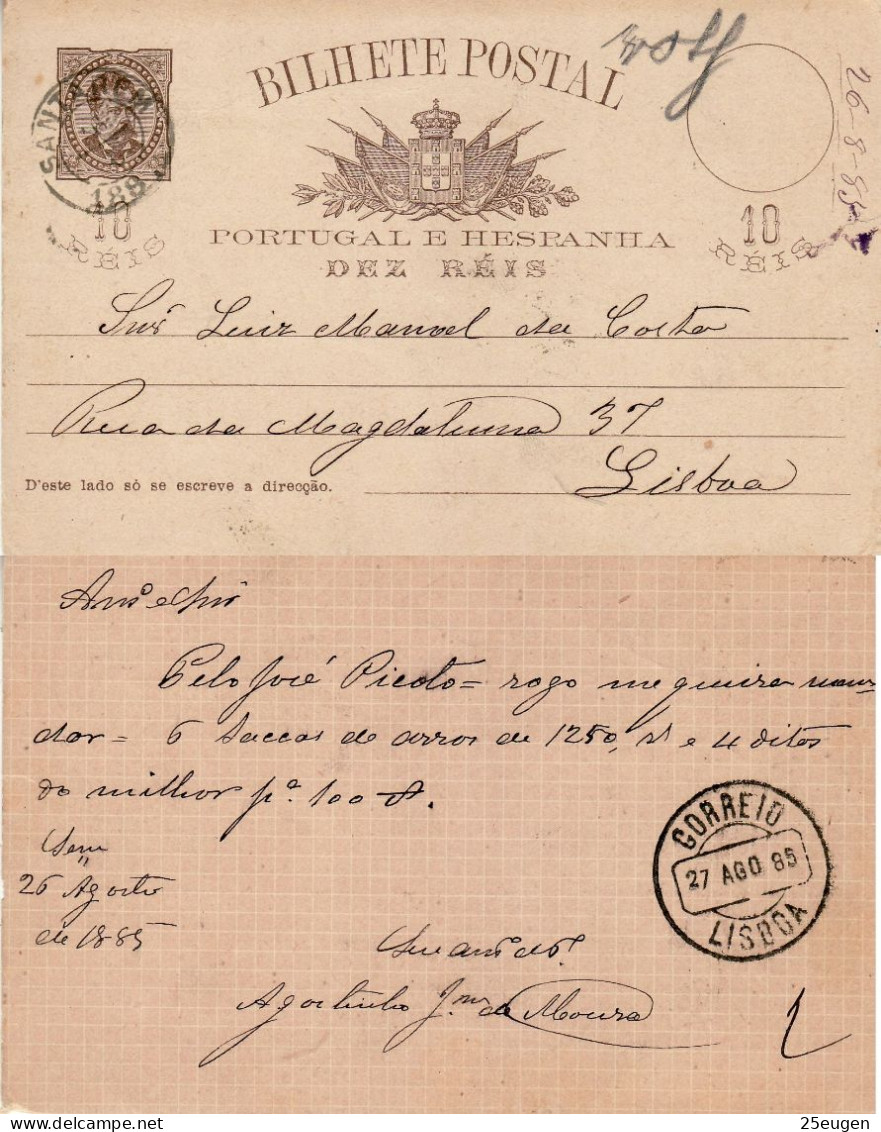 BILHETE POSTAL
26-8-85
SANTAREM
188
10 RÉIS
10 RÉIS
PORTUGAL E HESPANHA
DEZ RÉIS
Snr Luiz Manoel da Costa
Rua da Magdalena 37
Lisboa
D'este lado só se escreve a direcção.
Amº e Snr
Pelo José Picoto = rogo me queira man
dar = 6 saccas de arros de 1250, rs e 4 ditos
do milhor pª 100
26 Agosto
de 1885
CORREIO
27 AGO 85
LISBOA
Agostinho de Moura
25eugen